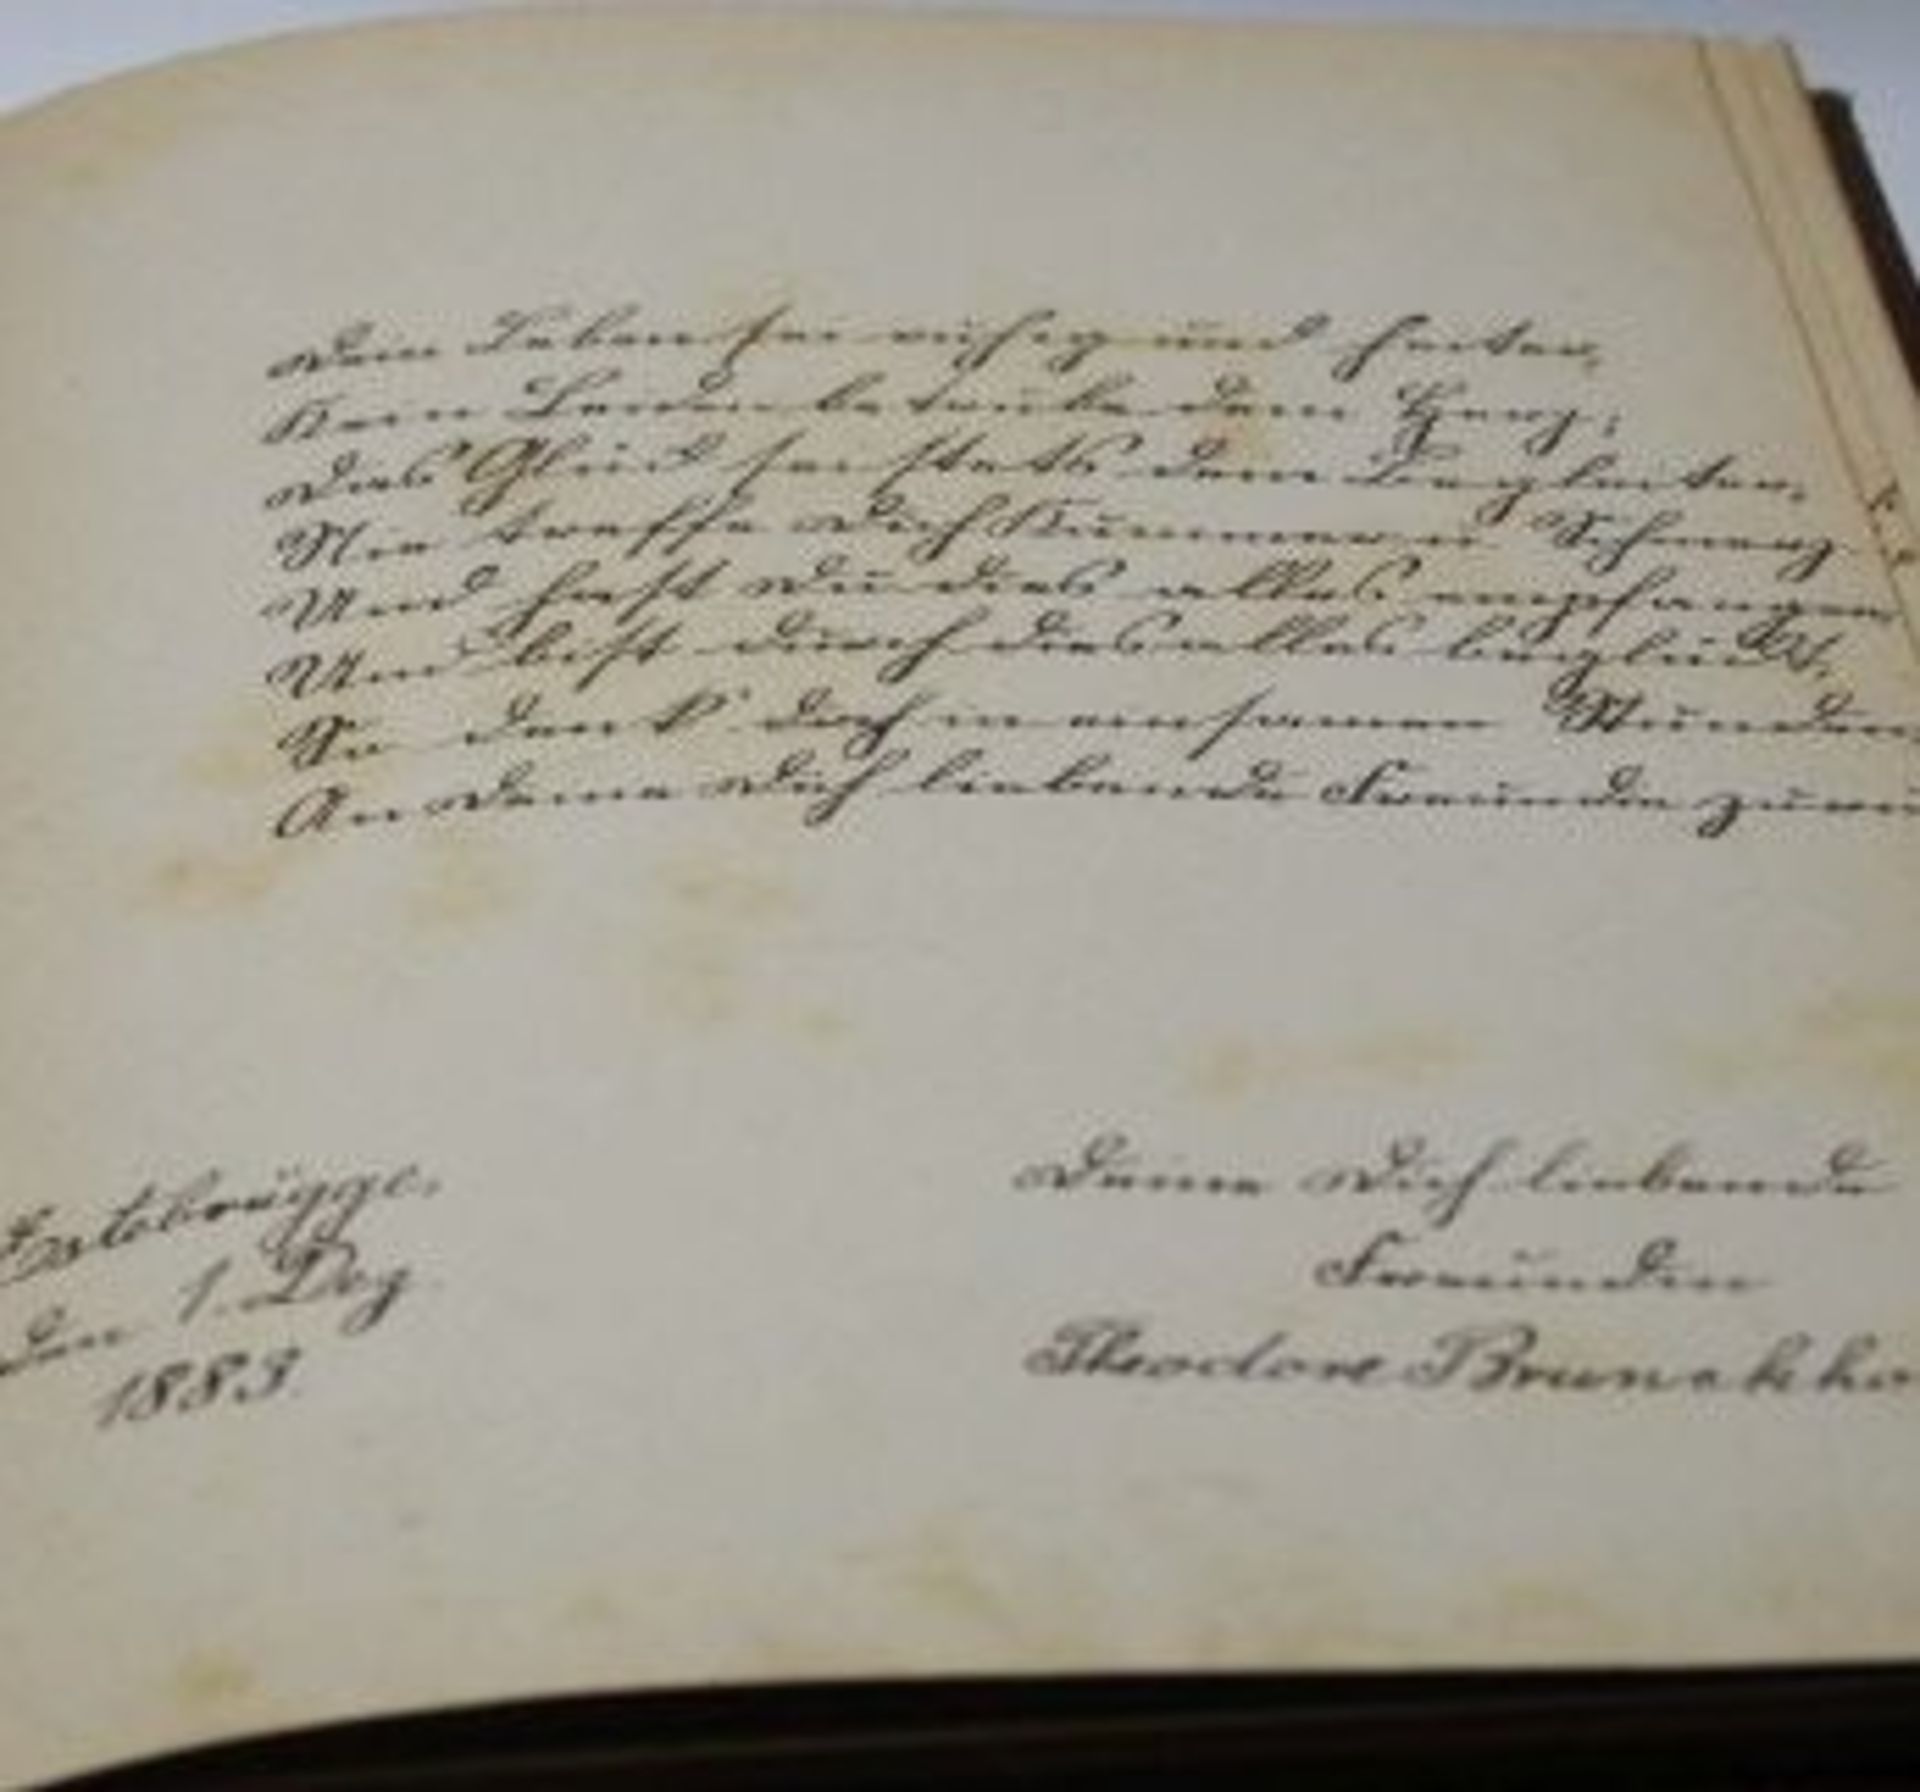 Dein Leben sei ruhig und heiter,
Kein Leiden betrübe dein Herz;
Das Glück sei stets dein Begleiter,
Nie treffe Dich Kummer u Schmerz
Und hast Du dies alles empfangen
Und bist durch dies alles beglückt,
So denk' doch in einsamen Stunden
An Deine Dich liebende Freundin
Estebrügge,
den 1. Dez.
1883.
Deine Dich liebende
Freundin
Theodore